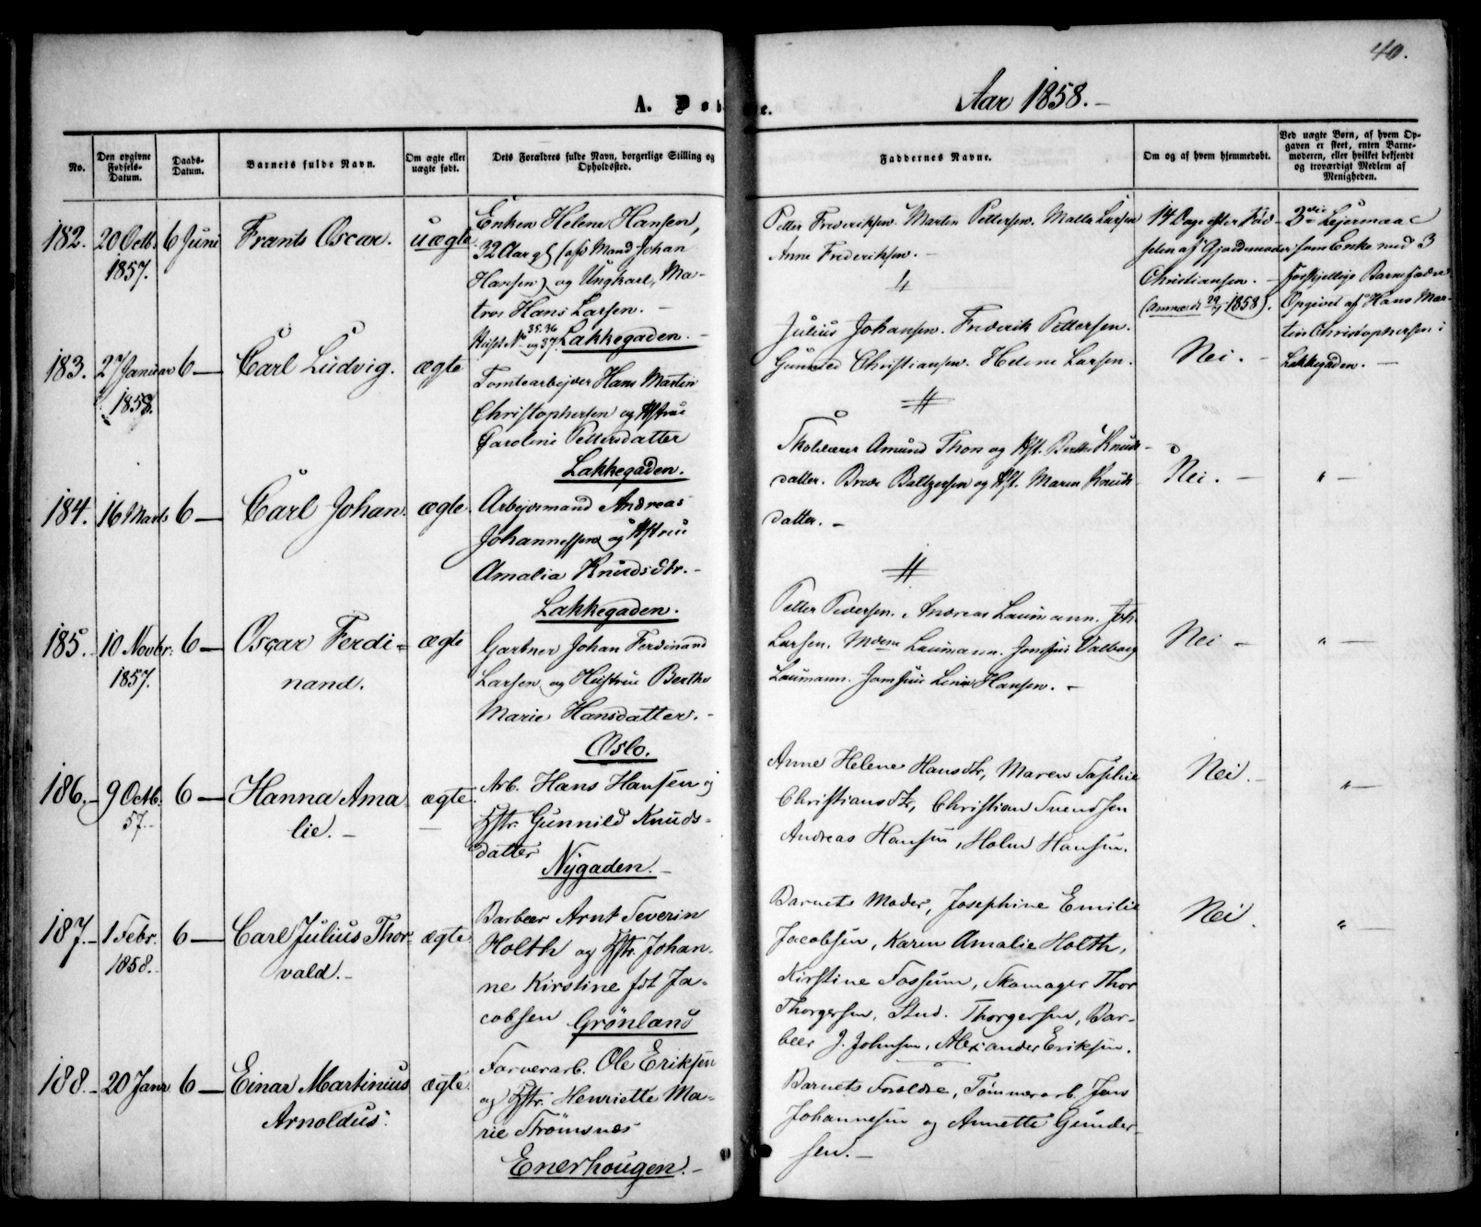 40.
A. Døbte.
Aar 1858.-
No.
Den opgivne Fødsels-Datum.
Daabs-Datum.
Barnets fulde Navn.
Om ægte eller uægte født.
Dets Forældres fulde Navn, borgerlige Stilling og Opholdssted.
Faddernes Navne.
Om og af hvem hjemmedøbt.
Ved uægte Børn, af hvem Opgaven er skeet, enten Barnemoderen, eller hvilket bekjendt og troværdigt Medlem af Menigheden.
182. 20 Octb. 6 Juni Frants Oscar. uægte
1857.
Enken Helene Hansen,
32 Aar gl. (afd. Mand Johan
Hansen) og Ungkarl, Ma-
tros Hans Larsen.-
35.36
og 37. Lakkegaden.-
Petter Frederiksen. Martin Pettersen. Mathe Larsen
Anne Frederiksen.-
14 Dage efter Fød-
selen af Gjordemoder
Christiansen.-
(Anmeldt 29/5 1858).
3die Leiermaal
som Enke med 3
forskjellige Barnefædre
Opgivet af Hans Mar-
tin Christophersen i
Lakkegaden.-
183. 27 Januar 6- Carl Ludvig. ægte
1858.
Tomtearbejder Hans Martin
Christophersen og Hstru
Caroline Pettersdatter
Lakkegaden.
Julius Johansen. Frederik Pettersen.
Christiansen. Helene Larsen.
Nei.-
184. 16 Marts 6- Carl Johan. ægte.
Arbejdsmand Andreas
Johannessen og Hstru
Amalia Knudsdtr.-
Lakkegaden.
Amund Thors og Hst. Berthe Knuds-
datter. Brede Baltzersen og Hst. Maren Knuds
datter.-
Nei.-
" -
185.- 10 Novbr. 6- Oscar Ferdi- ægte
1857. nand.
Gartner Johan Ferdinand
Larsen og Hustrue Berthe
Marie Hansdatter.-
Oslo.
Petter Pedersen. Andreas Laumann. Joh.
Larsen. Mdme Laumann. Jomfru Valborg
Laumann. Jomfrue Hansen.-
Nei -
" -
186.- 9 Octb. 6- Hanna Ama ægte
57.- lie.- -
Arb. Hans Hansen og
Hstr. Gunnild Knuds-
datter
Nygaden.-
Anne Helene Hansdtr, Maren Sophie
Christiansdtr, Christian Svendsen
Andreas Hansen, Holm Hansen.
Nei.-
" -
187.- 1 Febr. 6- Carl Julius Thor- ægte
1858.- vald.-
Barbeer Arnt Severin
Holth og Hstr. Johan-
ne Kirstine fdt Ja-
cobsen Grönland
Barnets Moder, Josephine Emilie
Jacobsen, Karen Amalie Holth,
Kirstine Fossum, Skomager Thor
Thorgersen, Stud. Thorgersen, Bar-
beer J. Johnsen, Alexander Eriksen.
Nei.
" -
188.- 20 Janr 6- Einar Martinius ægte.
Arnoldus.
Farverarb. Ole Eriksen
og Hstr. Henriette Ma-
rie Strömsnæs
Enerhougen.-
Barnets Forældre, Tømmerarb. Jens
Johannesen og Annette Gunder-
sen.-